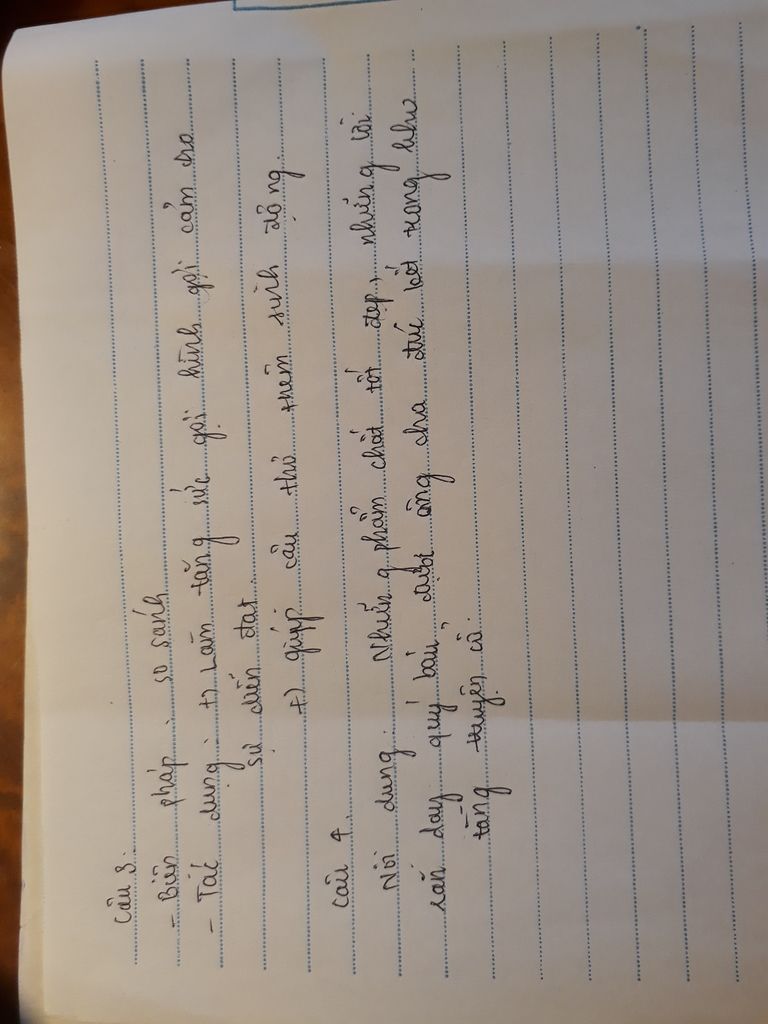 Câu 3.
- Biện pháp : so sánh
- Tác dụng : +) Làm tăng sức gợi hình gợi cảm cho
sự diễn đạt.
+) giúp câu thơ thêm sinh động.
Câu 4.
Nội dung : Những phẩm chất tốt đẹp, những lời
răn dạy quý báu, được ông cha đúc kết trong kho
tàng truyện cổ.